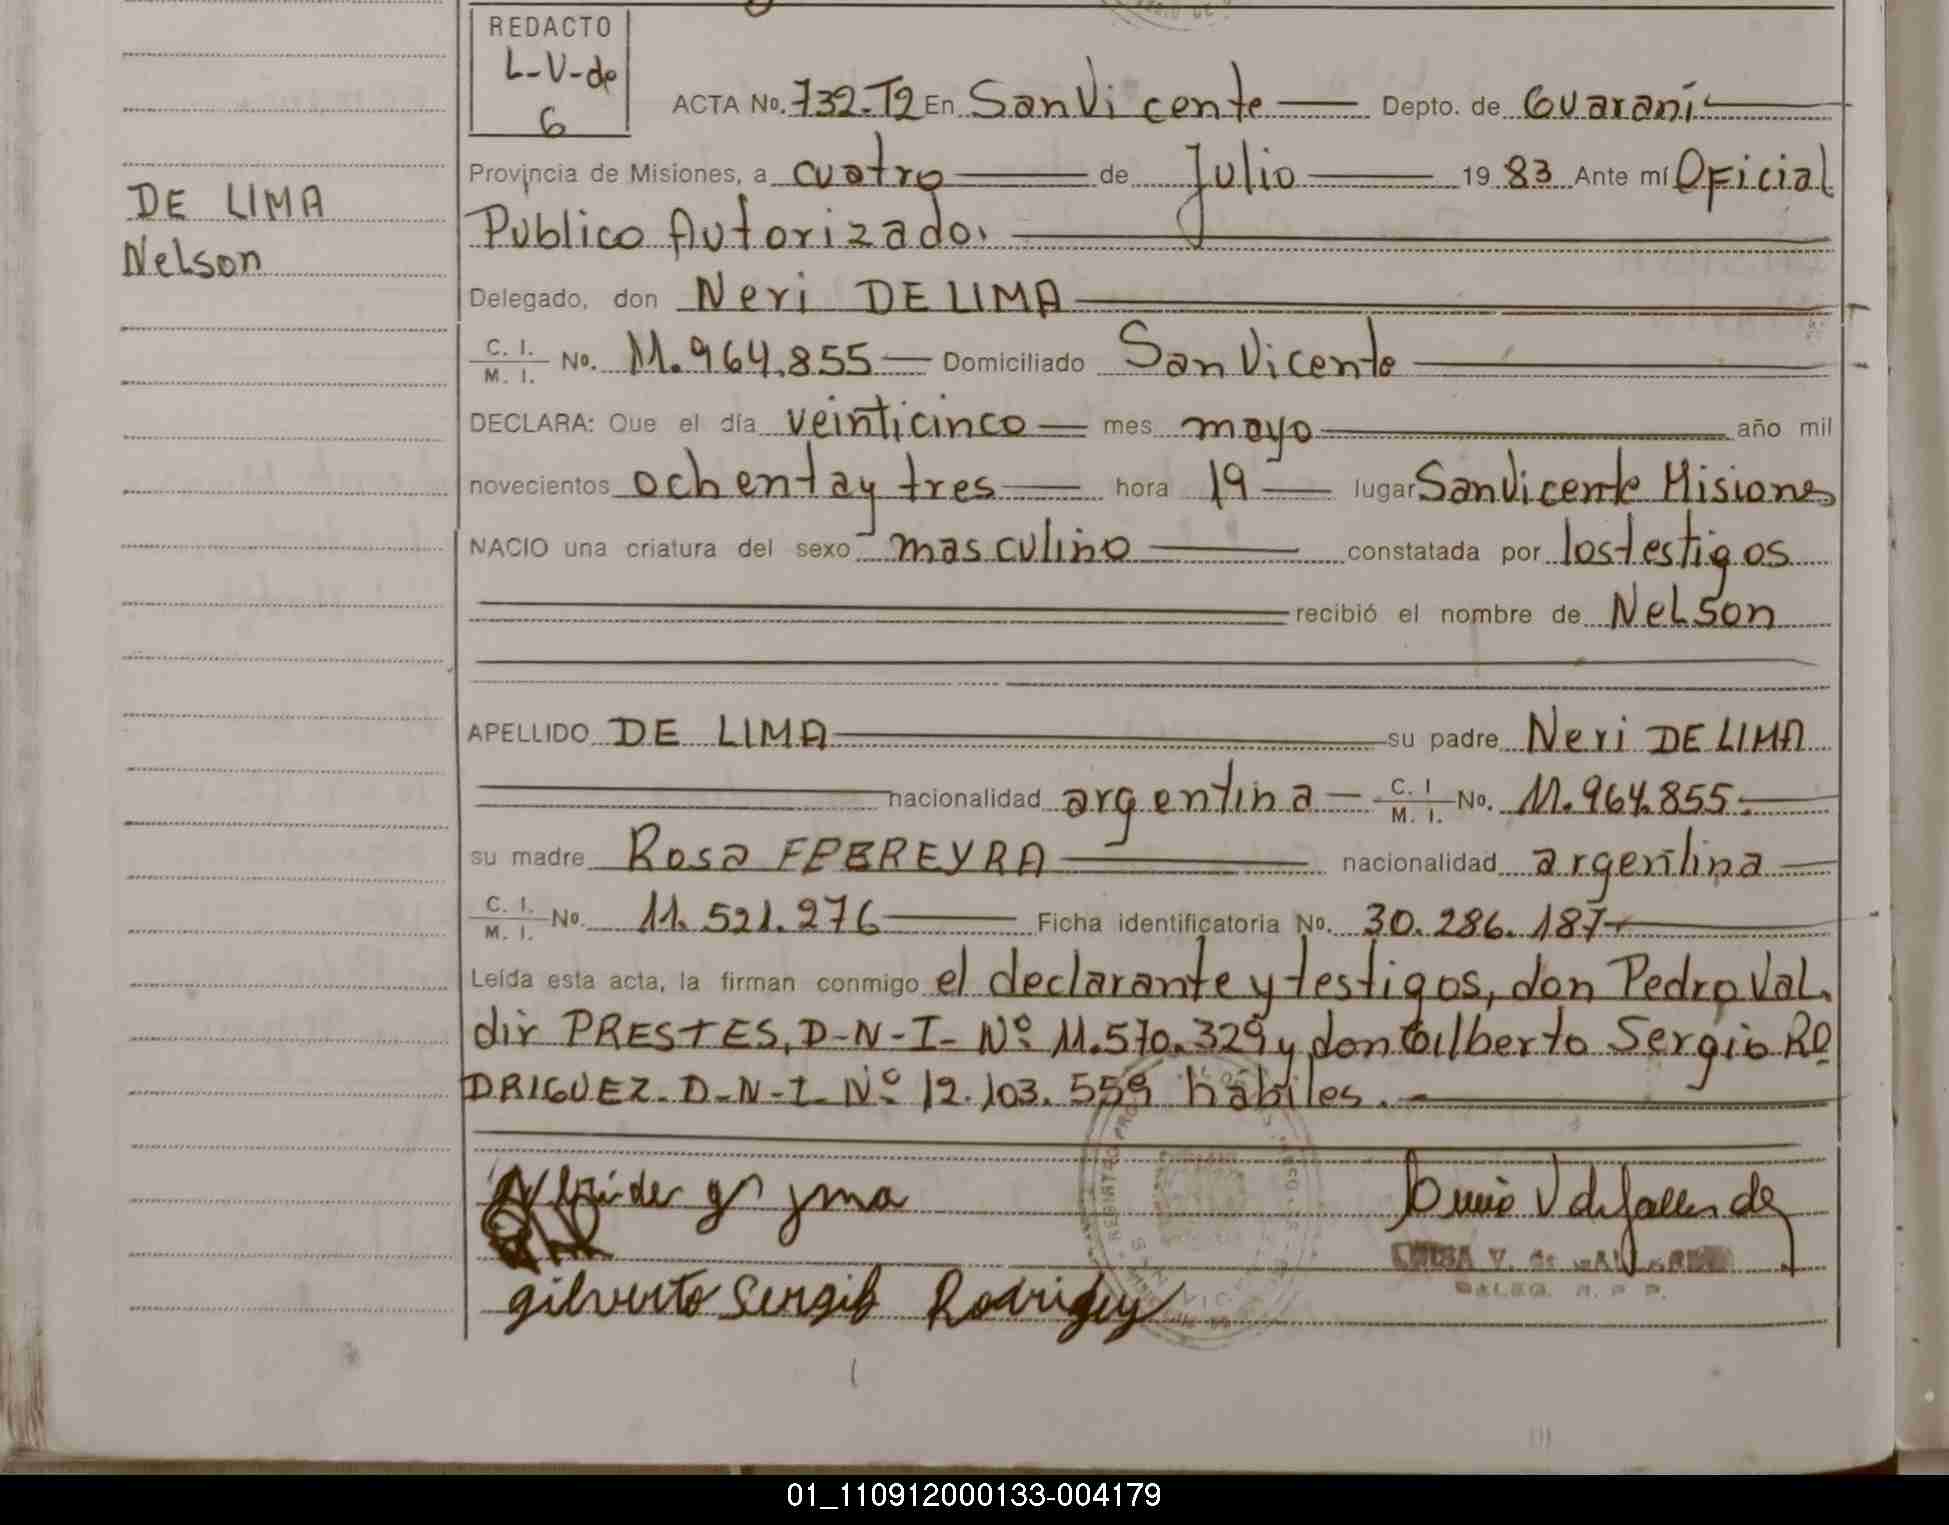 REDACTO
L-V-de
G
ACTA No. 732-T2 En San Vicente Depto. de Guaraní
Provincia de Misiones, a cuatro de Julio 1983 Ante mí Oficial
Publico Autorizado.
DE LIMA
Nelson
Delegado, don Neri DE LIMA
C. I. / M. I. No. 11.964.855 Domiciliado San Vicente
DECLARA: Que el día veinticinco mes mayo año mil
novecientos ochenta y tres hora 19 lugar San Vicente Misiones
NACIO una criatura del sexo masculino constatada por los testigos
recibió el nombre de Nelson
APELLIDO DE LIMA su padre Neri DE LIMA
nacionalidad argentina C. I / M. I. No. 11.964.855
su madre Rosa nacionalidad argentina
C. I. / M. I. No. 11.521.276 Ficha identificatoria No. 30.286.187
Leída esta acta, la firman conmigo el declarante y testigos, don Pedro Val.
dir PRESTES, D-N-I- Nº 11.570.329 y don Gilberto Sergio RO
DRIGUEZ. D-N-I- Nº 12.103.559 hábiles.
gilverto Sergio Rodriguez
01_110912000133-004179